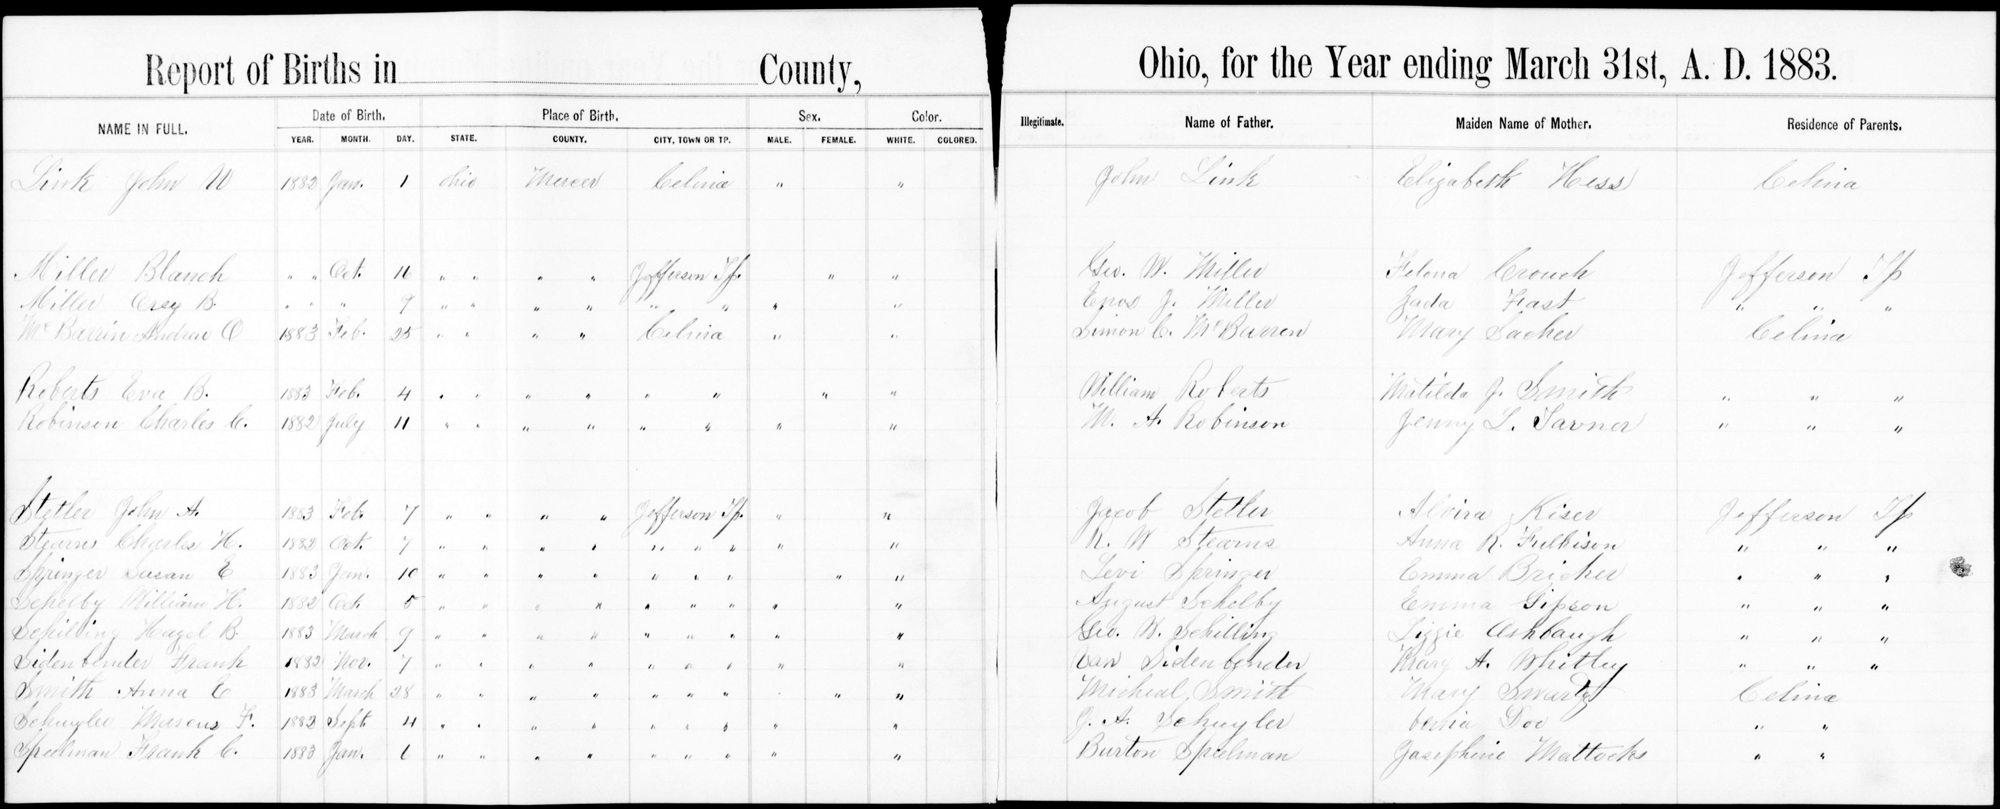 Report of Births in County, Ohio, for the Year ending March 31st, A. D. 1883.
NAME IN FULL. Date of Birth. Place of Birth, Sex. Color. Illegitimate. Name of Father. Maiden Name of Mother. Residence of Parents.
YEAR. MONTH. DAY. STATE. COUNTY. CITY, TOWN OR TP. MALE. FEMALE. WHITE. COLORED.
Link John W 1883 Jan. 1 Ohio Mercer Celina " " John Link Elizabeth Hess Celina
Miller Blanch " " Oct. 16 " " " " Jefferson Tp. " " Geo. W. Miller Crouch Jefferson Tp
Miller B. " " " 9 " " " " " " " " Enos J. Miller Zada Fast " " "
McBarrin Andrew O 1883 Feb. 25 " " " " Celina " " Simon C. McBarren Mary Sacher Celina
Roberts Eva B. 1883 Feb. 4 " " " " " " " " William Roberts Matilda J. Smith " " "
Robinson Charles C. 1882 July 11 " " " " " " " " W. A. Robinson Jenny L. Tavner " " "
Stetler John A. 1883 Feb. 7 " " " " Jefferson Tp. " " Jacob Stetler Alvira Kiser Jefferson Tp
Stearns Charles H. 1882 Oct. 7 " " " " " " " " " R. W Stearns Anna R. Fulbison " " "
Springer Susan E 1883 Jan. 10 " " " " " " " " " Levi Springer Emma Bricker " " "
Schelby William H. 1882 Oct. 5 " " " " " " " " " August Schelby Emma Gipson " " "
Schilling Hazel B. 1883 March 9 " " " " " " " " " Geo. W. Schilling Lizzie Ashbaugh " " "
Sidenbender Frank 1882 Nov. 7 " " " " " " " " " Van Sidenbender Mary A. Whitley " " "
Smith Anna E 1883 March 28 " " " " " " " " " Micheal Smith Mary Swartz Celina
Schuyler Marcus F. 1882 Sept. 4 " " " " " " " " " J. A. Schuyler Doe " "
Spielman Frank C. 1883 Jan. 6 " " " " " " " " " Burton Spielman Josephine Mattocks " "